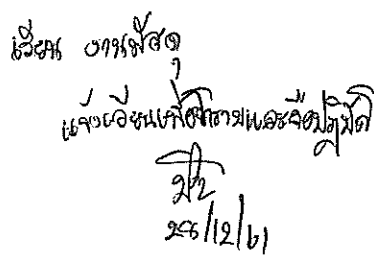 เรียน งานพัสดุ
แจ้งเวียนเพื่อทราบและถือปฏิบัติ
28/12/61